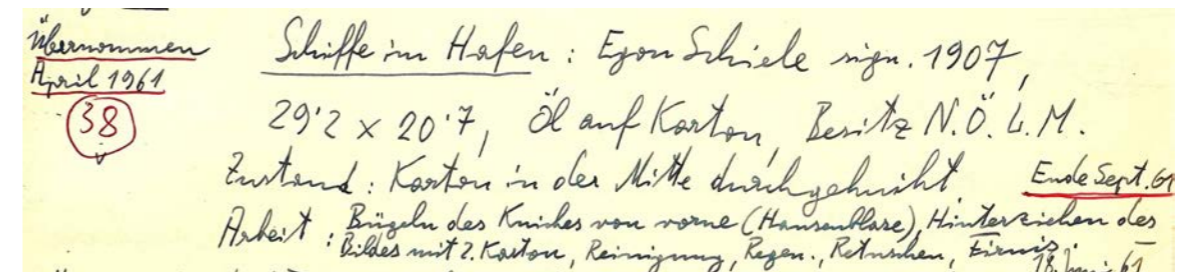 Übernommen
April 1961
38
Schiffe im Hafen : Egon Schiele sign. 1907,
29'2 x 20'7, Öl auf Karton, Besitz N.Ö.L.M.
Zustand : Karton in der Mitte durchgeknikt
Ende Sept. 61
Arbeit : Bügeln des Knickes von vorne (Hausenblase), Hinterziehen des
Bildes mit 2. Karton, Reinigung, Regen., Retuschen, Firnis.
18. Juni 61